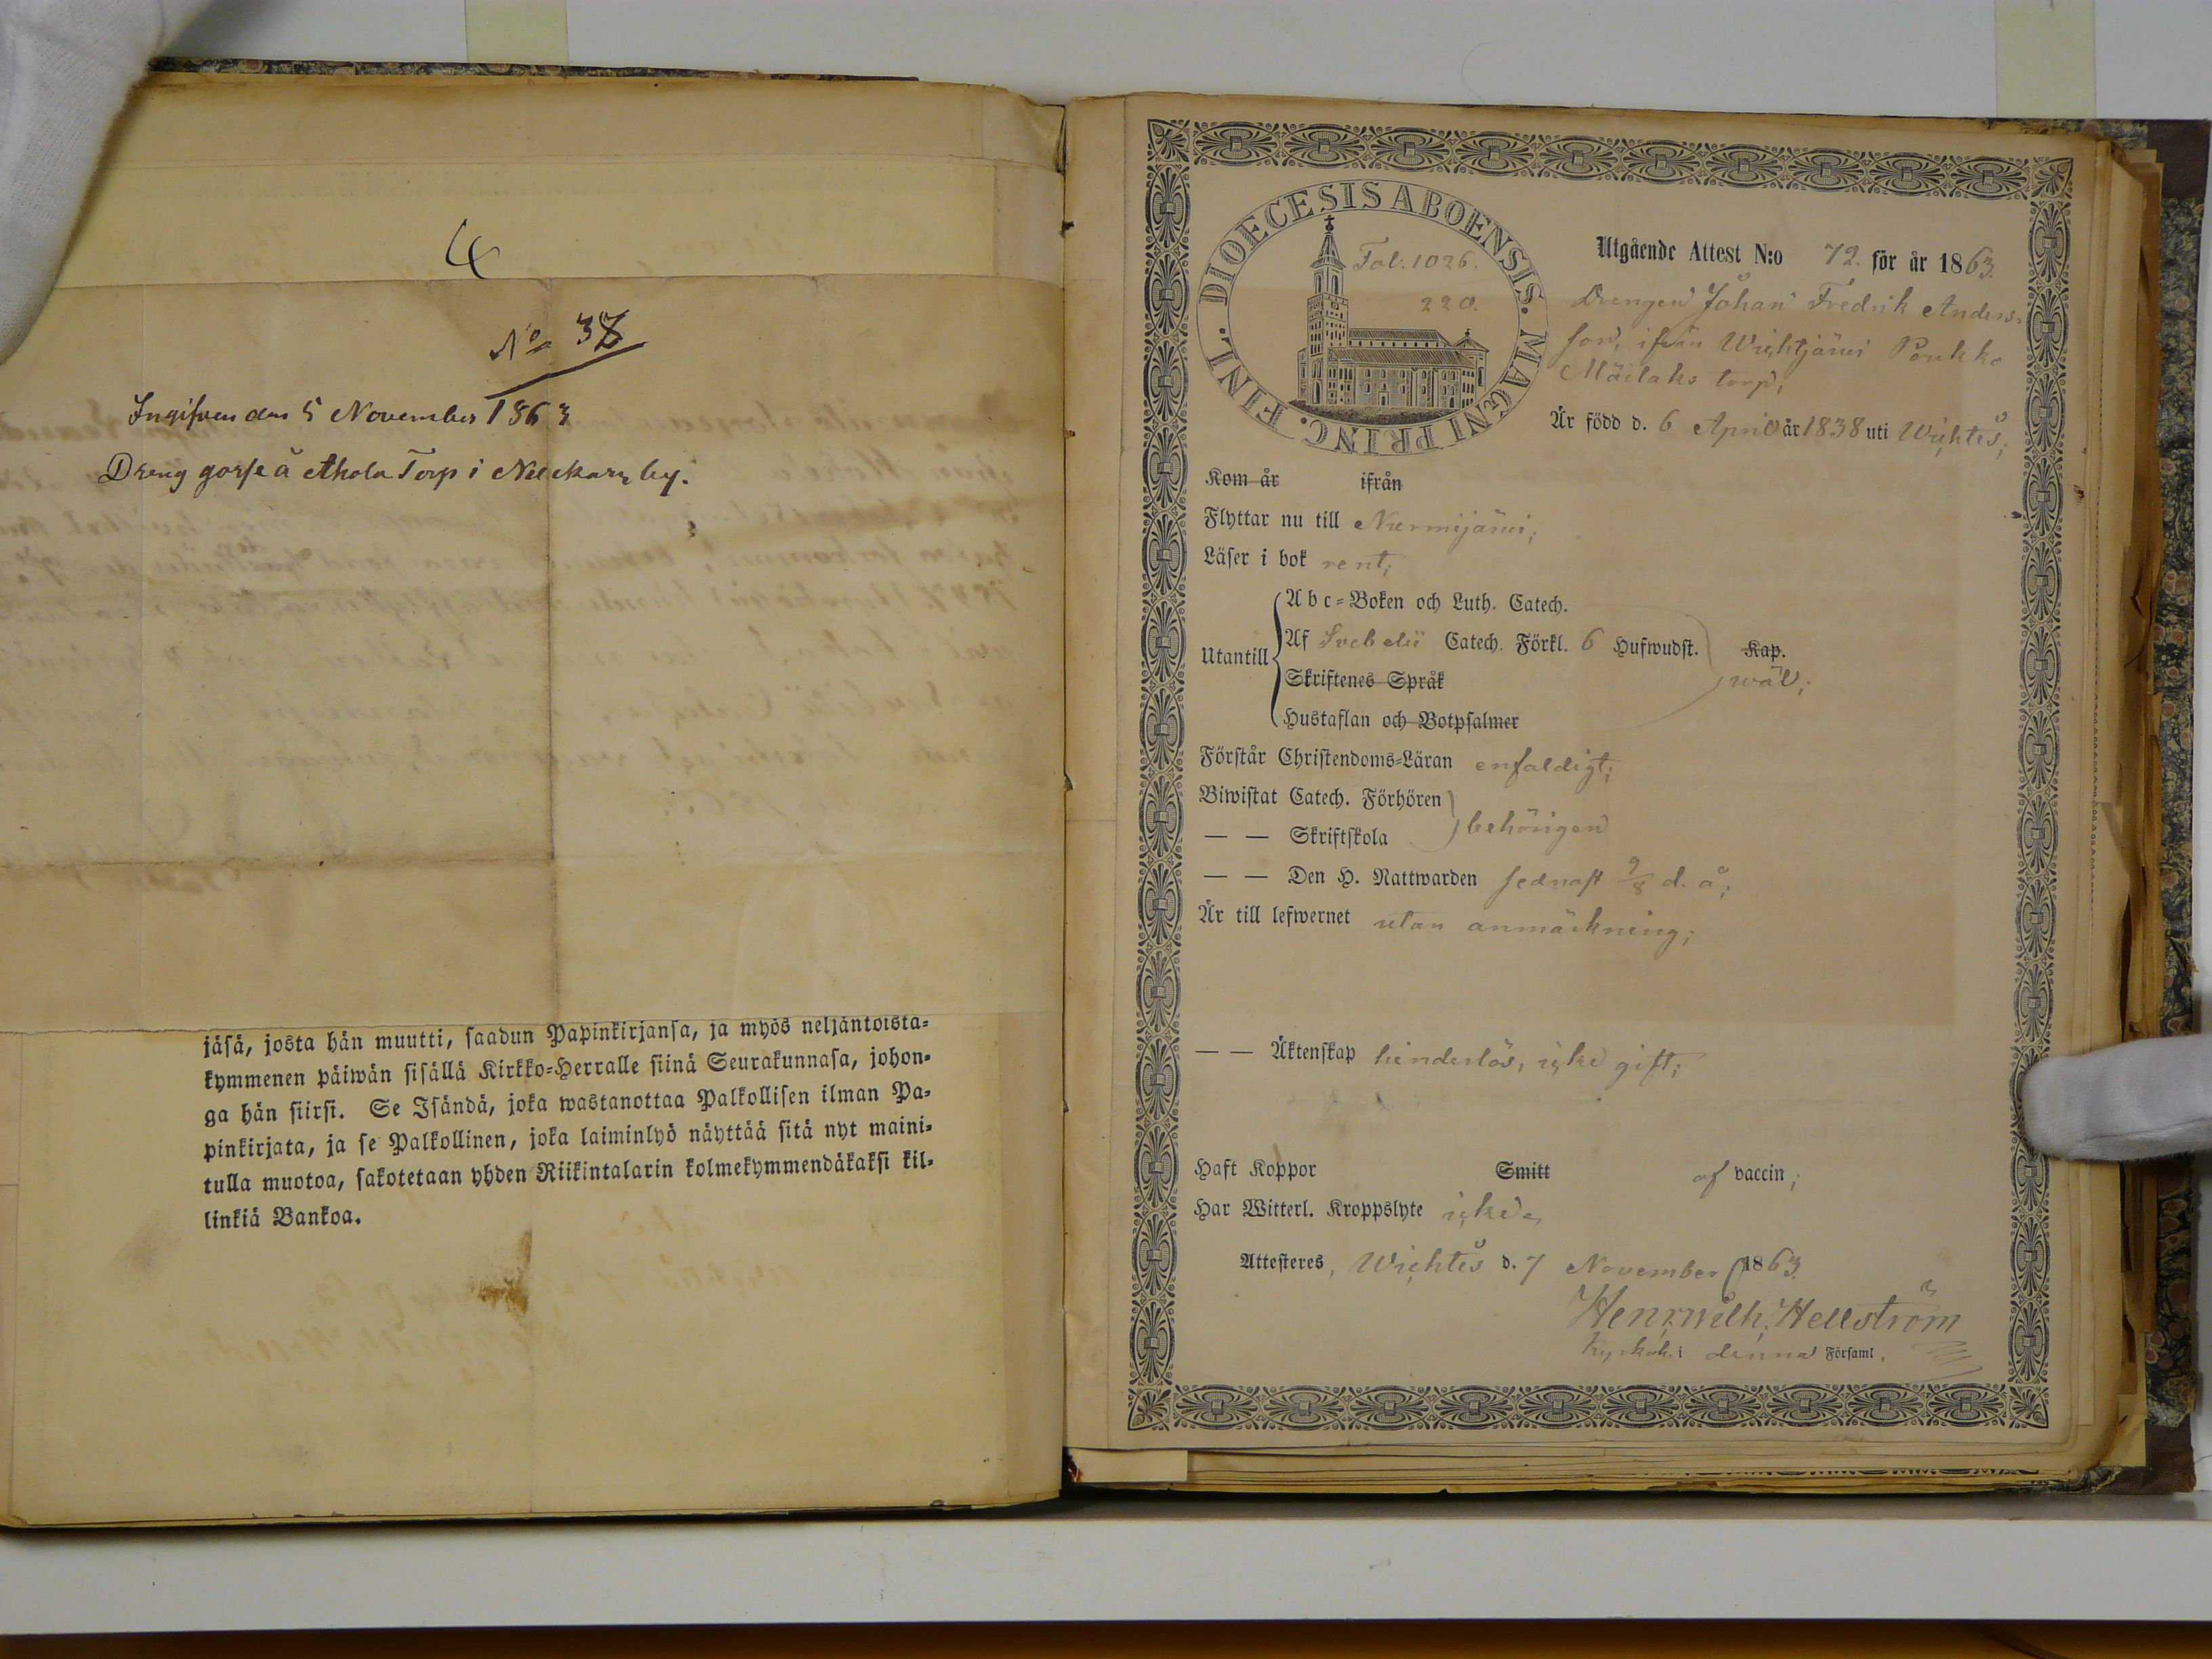 4
No 38
Ingifven den 5 November 1863
Dreng gosse å Ahola Torp i Nackars by.
jäsä, josta hän muutti, saadun Papinkirjansa, ja myös neljäntoista=
kymmenen päiwän sisällä Kirkko=Herralle siinä Seurakunnasa, johon=
ga hän siirsi. Se Isändä, joka wastanottaa Palkollisen ilman Pa=
pinkirjata, ja se Palkollinen, joka laiminlyö näyttää sitä nyt maini=
tulla muotoa, sakotetaan yhden Riikintalarin kolmekymmendäkaksi kil=
linkiä Bankoa.
DIOECESIS ABOENSIS. MAGNI PRINC. FINL.
Fol. 1026.
220.
Utgående Attest N:o 72. för år 1863.
Drengen Johan Fredrik Anders=
son, ifrån Wichtjärvi Poukka
Mäilaks torp,
Är född d. 6 April år 1838 uti Wichtis;
Kom år ifrån
Flyttar nu till Nurmijärvi;
Läser i bok rent;
Utantill
Abc=Boken och Luth. Catech.
Af Svebelii Catech. Förkl. 6 Hufwudst. Kap.
Skriftenes Språk
wäl;
Hustaflan och Botpsalmer
Förstår Christendoms=Läran enfaldigt;
Biwistat Catech. Förhören
— — Skriftskola
behörigen
— — Den H. Nattwarden sednast 9/8 d. å;
Är till lefwernet utan anmärkning;
— — Äktenskap hinderlös, icke gift;
Haft Koppor Smitt af vaccin;
Har Witterl. Kroppslyte icke.
Attesteres, Wichtis d. 7 November 1863.
Henr. Wilh. Hellström
kyrkoh. i denna Församl.